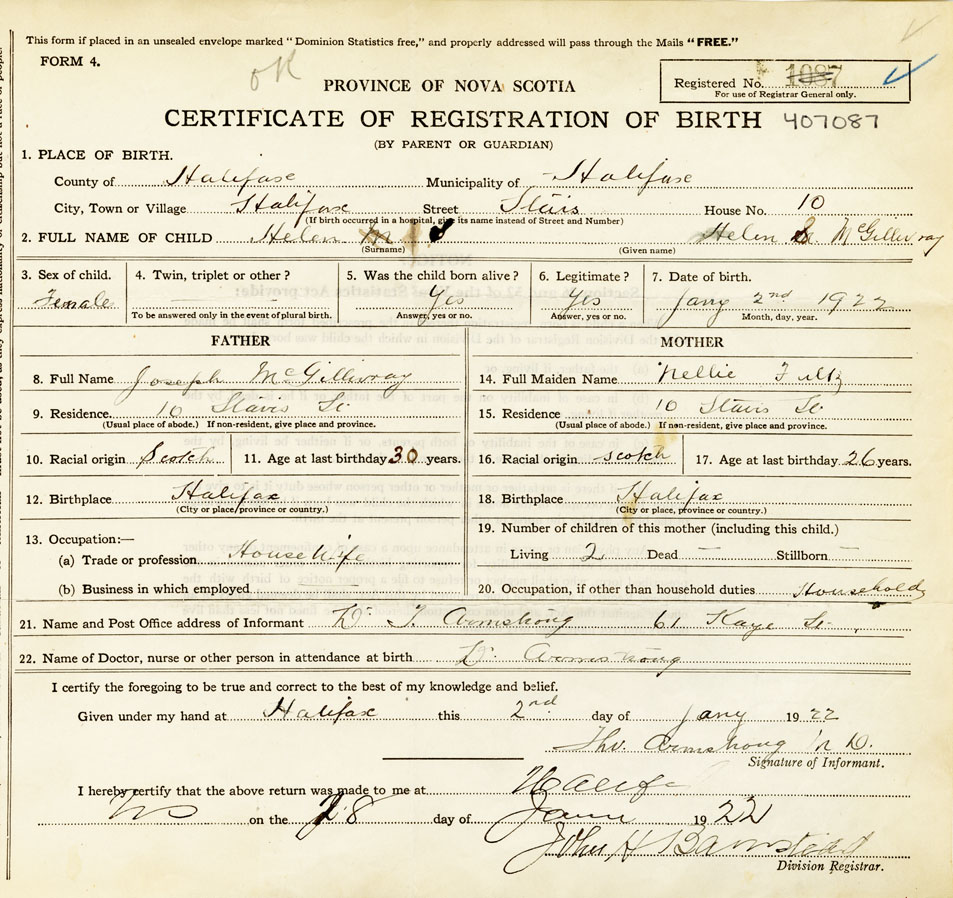 This form if placed in an unsealed envelope marked "Dominion Statistics free," and properly addressed will pass through the Mails "FREE."
FORM 4.
OK
PROVINCE OF NOVA SCOTIA
Registered No. 1087
For use of Registrar General only.
CERTIFICATE OF REGISTRATION OF BIRTH 407087
(BY PARENT OR GUARDIAN)
1. PLACE OF BIRTH.
County of Halifax Municipality of Halifax
City, Town or Village Halifax Street Stairs House No. 10
(If birth occurred in a hospital, give its name instead of Street and Number)
2. FULL NAME OF CHILD Helen Helen McGillivray
(Surname) (Given name)
3. Sex of child. 4. Twin, triplet or other? 5. Was the child born alive? 6. Legitimate? 7. Date of birth.
Female Yes Yes Jany 2nd 1922
To be answered only in the event of plural birth. Answer, yes or no. Answer, yes or no. Month, day, year.
FATHER
8. Full Name Joseph McGillivray
9. Residence. 10 Stairs St
(Usual place of abode.) If non-resident, give place and province.
10. Racial origin Scotch 11. Age at last birthday 30 years.
12. Birthplace Halifax
(City or place/province or country.)
13. Occupation:—
(a) Trade or profession. House Wife
(b) Business in which employed
MOTHER
14. Full Maiden Name Nellie Fultz
15. Residence 10 Stairs St
(Usual place of abode.) If non-resident, give place and province.
16. Racial origin Scotch 17. Age at last birthday 26 years.
18. Birthplace Halifax
(City or place, province or country.)
19. Number of children of this mother (including this child.)
Living 2 Dead — Stillborn —
20. Occupation, if other than household duties Household
21. Name and Post Office address of Informant Dr. T. Armstrong 61 Kaye St.
22. Name of Doctor, nurse or other person in attendance at birth Dr. Armstrong
I certify the foregoing to be true and correct to the best of my knowledge and belief.
Given under my hand at Halifax this 2nd day of Jany 1922
Thos. Armstrong M.D.
Signature of Informant.
I hereby certify that the above return was made to me at Halifx
on the 28 day of Jany 1922
John H Barnstead
Division Registrar.